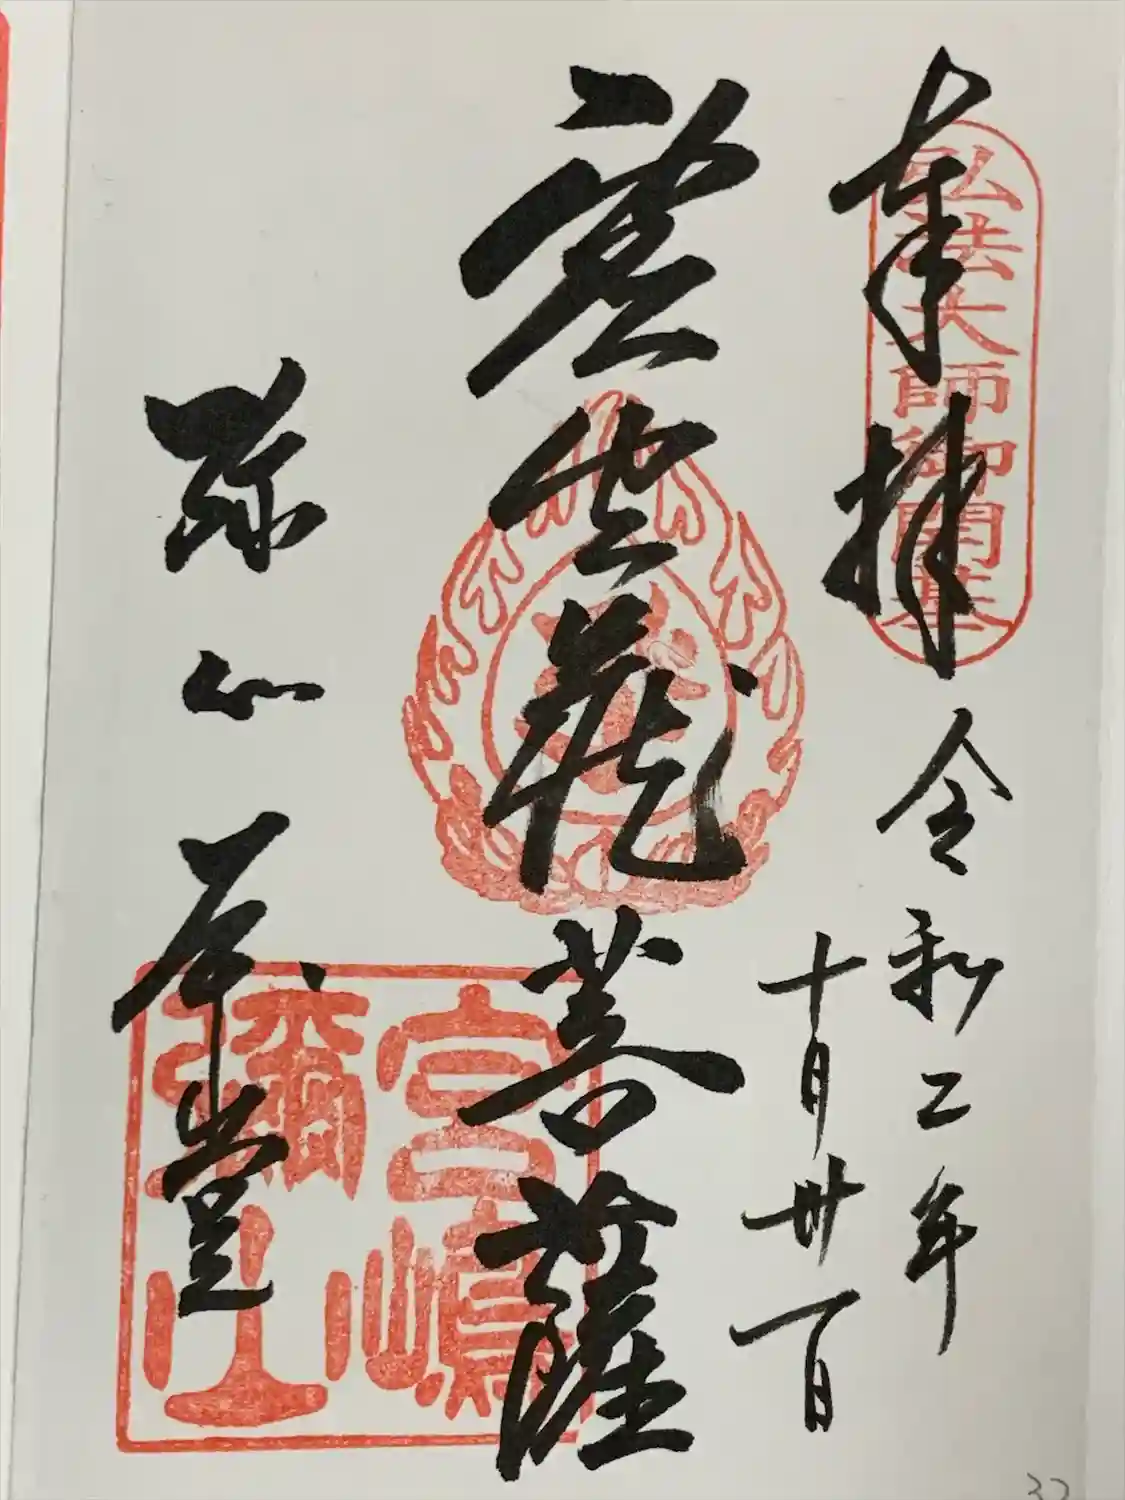 奉拝
弘法大師御開基
令和二年
十月卅一日
虚空蔵菩薩
弥山本堂
宮嶋
彌山